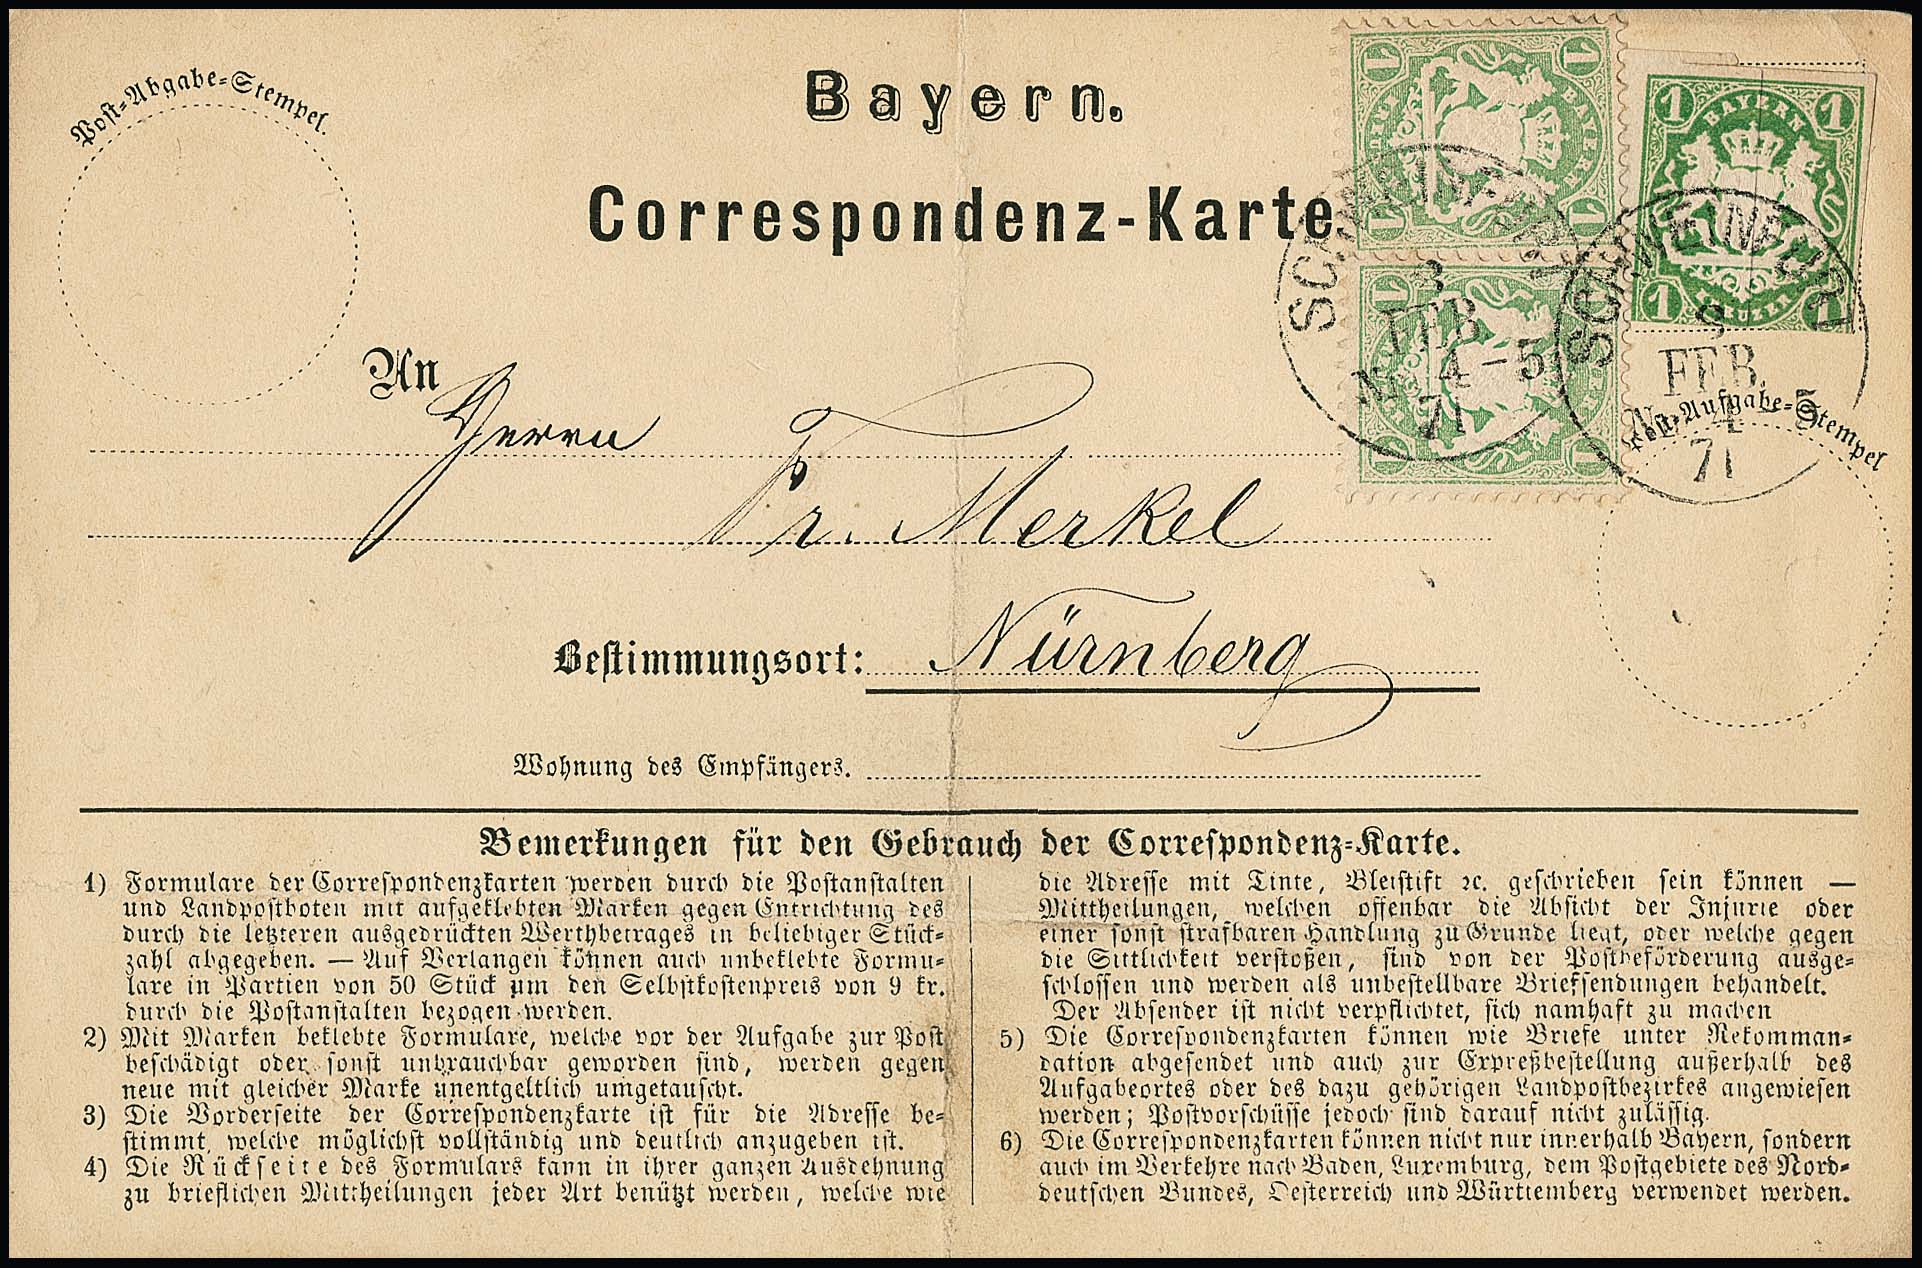 Post-Abgabe-Stempel.
Bayern.
Correspondenz-Karte
1 BAYERN 1
1 KREUZER 1
1 BAYERN 1
1 KREUZER 1
1 BAYERN 1
1 KREUZER 1
SCHWEINFURT
8
FEB
Nm 4-5
71
SCHWEINFURT
8
FEB.
Nm 4-5
71
Post-Aufgabe-Stempel
An
Herrn
Fr. Merkel
Bestimmungsort: Nürnberg
Wohnung des Empfängers.
Bemerkungen für den Gebrauch der Correspondenz-Karte.
1) Formulare der Correspondenzkarten werden durch die Postanstalten
und Landpostboten mit aufgeklebten Marken gegen Entrichtung des
durch die letzteren ausgedrückten Werthbetrages in beliebiger Stück-
zahl abgegeben. — Auf Verlangen können auch unbeklebte Formu-
lare in Partien von 50 Stück um den Selbstkostenpreis von 9 kr.
durch die Postanstalten bezogen werden.
2) Mit Marken beklebte Formulare, welche vor der Aufgabe zur Post
beschädigt oder sonst unbrauchbar geworden sind, werden gegen
neue mit gleicher Marke unentgeltlich umgetauscht.
3) Die Vorderseite der Correspondenzkarte ist für die Adresse be-
stimmt, welche möglichst vollständig und deutlich anzugeben ist.
4) Die Rückseite des Formulars kann in ihrer ganzen Ausdehnung
zu brieflichen Mittheilungen jeder Art benützt werden, welche wie
die Adresse mit Tinte, Bleistift ꝛc. geschrieben sein können —
Mittheilungen, welchen offenbar die Absicht der Injurie oder
einer sonst strafbaren Handlung zu Grunde liegt, oder welche gegen
die Sittlichkeit verstoßen, sind von der Postbeförderung ausge-
schlossen und werden als unbestellbare Briefsendungen behandelt.
Der Absender ist nicht verpflichtet, sich namhaft zu machen
5) Die Correspondenzkarten können wie Briefe unter Rekomman-
dation abgesendet und auch zur Expreßbestellung außerhalb des
Aufgabeortes oder des dazu gehörigen Landpostbezirkes angewiesen
werden; Postvorschüsse jedoch sind darauf nicht zulässig.
6) Die Correspondenzkarten können nicht nur innerhalb Bayern, sondern
auch im Verkehre nach Baden, Luxemburg, dem Postgebiete des Nord-
deutschen Bundes, Oesterreich und Württemberg verwendet werden.